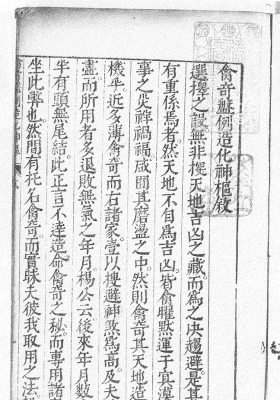 禽奇蘇倒造化神樞敘
選擇之設無非探天地吉凶之藏而爲之决趨避是其
有重係焉者然天地不自爲吉凶皆禽曜黙運于冥漠
事之災祥禍福咸囿其磨盪之中然則禽奇其天地造
機乎近多薄禽奇而右諸家嘗以搜避神煞爲高及夫
盡而所用者多退敗無氣之年月楊公云後來年月數
半有頭無尾結此正言不達造命禽奇之秘而事用諸
坐此弊也然間有托名禽奇而實昧夫彼我取用之法